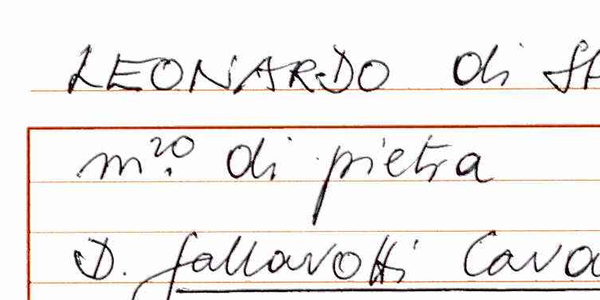 LEONARDO di
m.ro di pietra
D. Gallavotti Cava